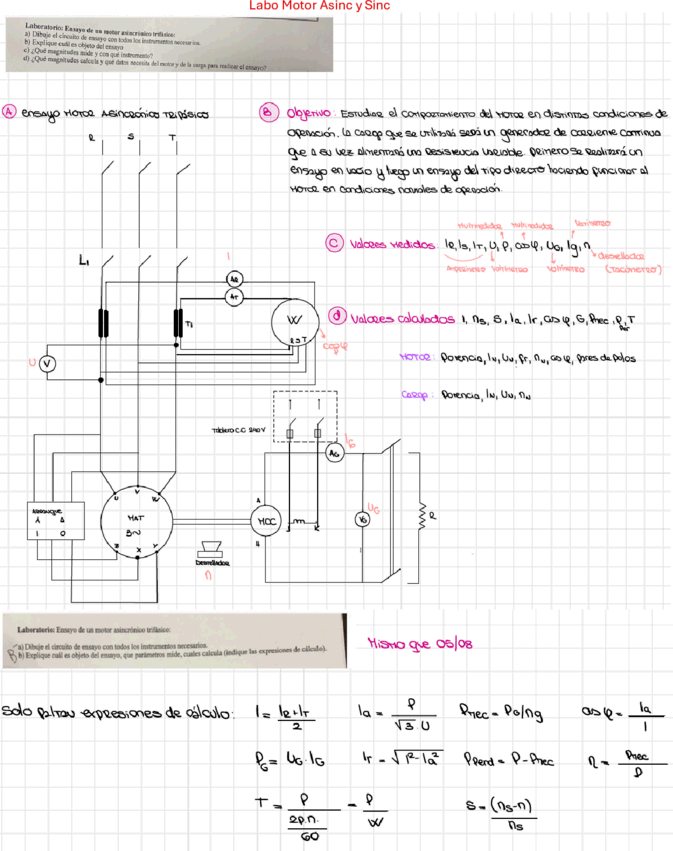 Labo Motor Asinc y Sinc
Laboratorio: Ensayo de un motor asincrónico trifásico:
a) Dibuje el circuito de ensayo con todos los instrumentos necesarios.
b) Explique cuál es objeto del ensayo
c) ¿Qué magnitudes mide y con qué instrumento?
d) ¿Qué magnitudes calcula y qué datos necesita del motor y de la carga para realizar el ensayo?
A ensayo Motor Asincrónico Trifásico
R S T
L1
I
AR
AT
W
R S T
Ti
cosφ
U V
Tablero C.C 220V
IG
AG
ARRANQUE
λ Δ
1 0
U V W
MAT
3~
Z X Y
Destellador
n
A
MCC
H
m
UG
VG
R
B Objetivo: Estudiar el comportamiento del motor en distintas condiciones de
operación. La carga que se utilizará será un generador de corriente continua
que a su vez alimentará una resistencia variable. Primero se realizará un
ensayo en vacío y luego un ensayo del tipo directo haciendo funcionar al
motor en condiciones normales de operación.
Multimedidor Multimedidor Varímetro
C Valores medidos: IR, IS, IT, U, P, cosφ, UG, Ig, n
Amperímetro Voltímetro Voltímetro Destellador
(Tacómetro)
d Valores calculados I, ns, S, Ia, Ir, cosφ, G, Pmec, PG, T
Motor: Potencia, IN, UN, fr, nN, cosφ, pares de polos
Carga: Potencia, IN, UN, nN
Laboratorio: Ensayo de un motor asincrónico trifásico:
a) Dibuje el circuito de ensayo con todos los instrumentos necesarios.
b) Explique cuál es objeto del ensayo, que parámetros mide, cuales calcula (indique las expresiones de cálculo).
Mismo que 05/08
Solo faltan expresiones de cálculo: I = IR + IT / 2 Ia = P / √3 . U Pmec = PG/ηg cosφ = Ia / I
PG = UG . IG Ir = √I² - Ia² Pperd = P - Pmec η = Pmec / P
T = P / (2p.n. / 60) = P / W S = (ns - n) / ns